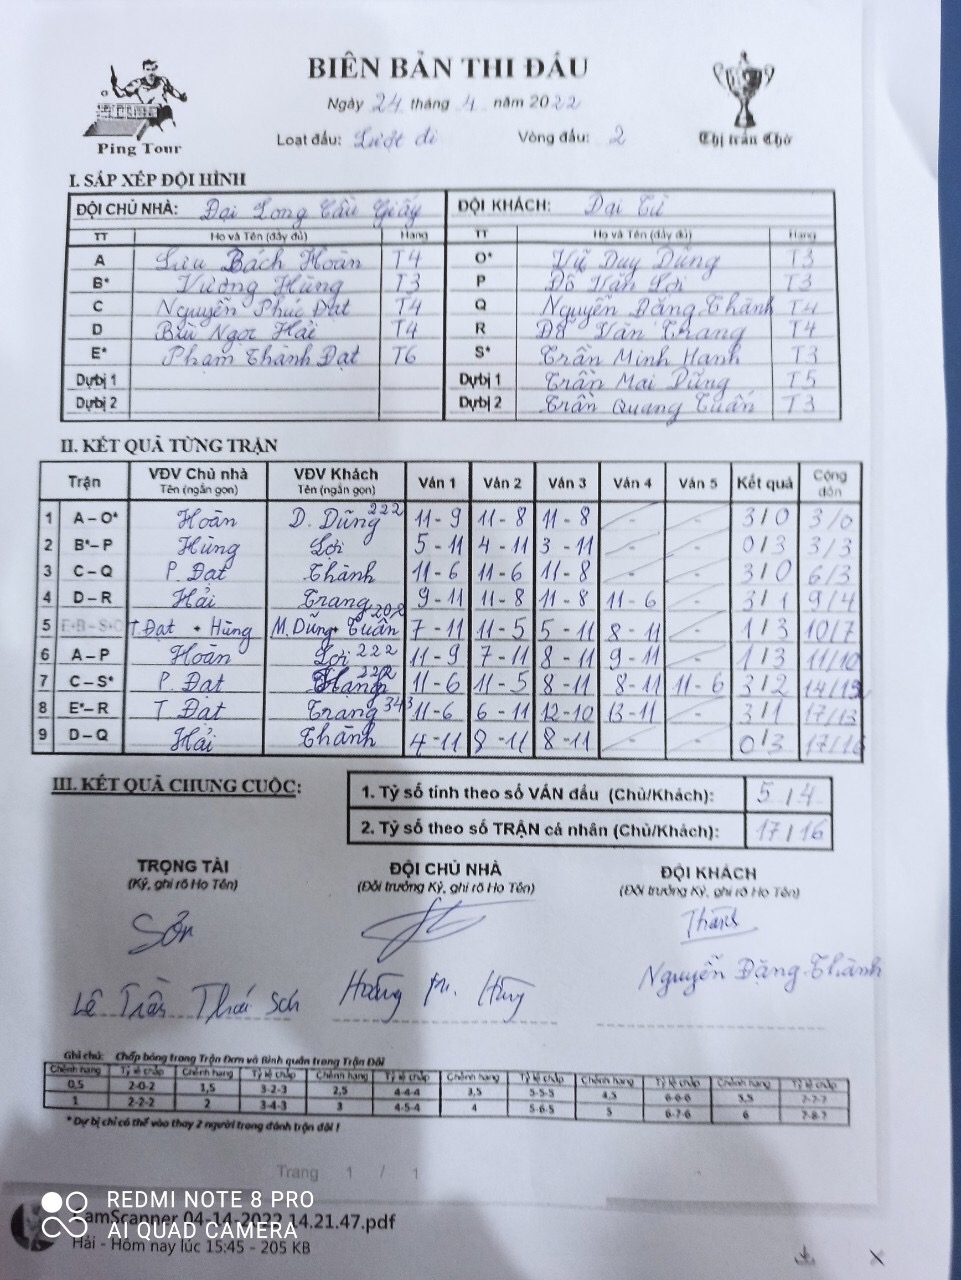 BIÊN BẢN THI ĐẤU
Ngày 24 tháng 4 năm 2022
Loạt đấu: Lượt đi Vòng đấu: 2
Ping Tour
Thị trấn Chờ
I. SẮP XẾP ĐỘI HÌNH
ĐỘI CHỦ NHÀ: Đại Long Cầu Giấy ĐỘI KHÁCH: Đại Từ
TT Họ và Tên (đầy đủ) Hạng TT Họ và Tên (đầy đủ) Hạng
A Lưu Bách Hoàn T4 O* Vũ Duy Dũng T3
B* Vương Hùng T3 P Đỗ Văn Lợi T3
C Nguyễn Phúc Đạt T4 Q Nguyễn Đăng Thành T4
D Bùi Ngọc Hải T4 R Đỗ Văn Trang T4
E* Phạm Thành Đạt T6 S* Trần Minh Hạnh T3
Dự bị 1 Dự bị 1 Trần Mai Dũng T5
Dự bị 2 Dự bị 2 Trần Quang Tuấn T3
II. KẾT QUẢ TỪNG TRẬN
Trận VĐV Chủ nhà Tên (ngắn gọn) VĐV Khách Tên (ngắn gọn) Ván 1 Ván 2 Ván 3 Ván 4 Ván 5 Kết quả Cộng dồn
1 A – O* Hoàn D. Dũng 222 11 - 9 11 - 8 11 - 8 - - 3/0 3/0
2 B* – P Hùng Lợi 5 - 11 4 - 11 3 - 11 - - 0/3 3/3
3 C – Q P. Đạt Thành 11 - 6 11 - 6 11 - 8 - - 3/0 6/3
4 D – R Hải Trang 9 - 11 11 - 8 11 - 8 11 - 6 - 3/1 9/4
5 T.Đạt + Hùng M.Dũng + Tuấn 7 - 11 11 - 5 5 - 11 8 - 11 - 1/3 10/7
6 A – P Hoàn Lợi 222 11 - 9 7 - 11 8 - 11 9 - 11 - 1/3 11/10
7 C – S* P. Đạt 222 11 - 6 11 - 5 8 - 11 8 - 11 11 - 6 3/2
8 E* – R T Đạt Trang 343 11 - 6 6 - 11 12 - 10 13 - 11 - 3/1 17/13
9 D – Q Hải Thành 4 - 11 8 - 11 8 - 11 - - 0/3 17/16
III. KẾT QUẢ CHUNG CUỘC:
1. Tỷ số tính theo số VÁN đấu (Chủ/Khách): 5/4
2. Tỷ số theo số TRẬN cá nhân (Chủ/Khách): 17/16
TRỌNG TÀI ĐỘI CHỦ NHÀ ĐỘI KHÁCH
(Ký, ghi rõ Họ Tên) (Đội trưởng Ký, ghi rõ Họ Tên) (Đội trưởng Ký, ghi rõ Họ Tên)
Sơn Thành
Lê Trần Thái Sơn Hoàng Hùng Nguyễn Đặng Thành
Ghi chú: Chấp bóng trong Trận Đơn và Bình quân trong Trận Đôi
Chênh hạng Tỷ lệ chấp Chênh hạng Tỷ lệ chấp Chênh hạng Tỷ lệ chấp Chênh hạng Tỷ lệ chấp Chênh hạng Tỷ lệ chấp Chênh hạng Tỷ lệ chấp
0,5 2-0-2 1,5 3-2-3 2,5 4-4-4 3,5 5-5-5 4,5 6-6-6 5,5 7-7-7
1 2-2-2 2 3-4-3 3 4-5-4 4 5-6-5 5 6-7-6 6 7-8-7
* Dự bị chỉ có thể vào thay 2 người trong đánh trận đôi !
Trang 1 / 1
REDMI NOTE 8 PRO
AI QUAD CAMERA
CamScanner 04-14-2022 14.21.47.pdf
Hải - Hôm nay lúc 15:45 - 205 KB